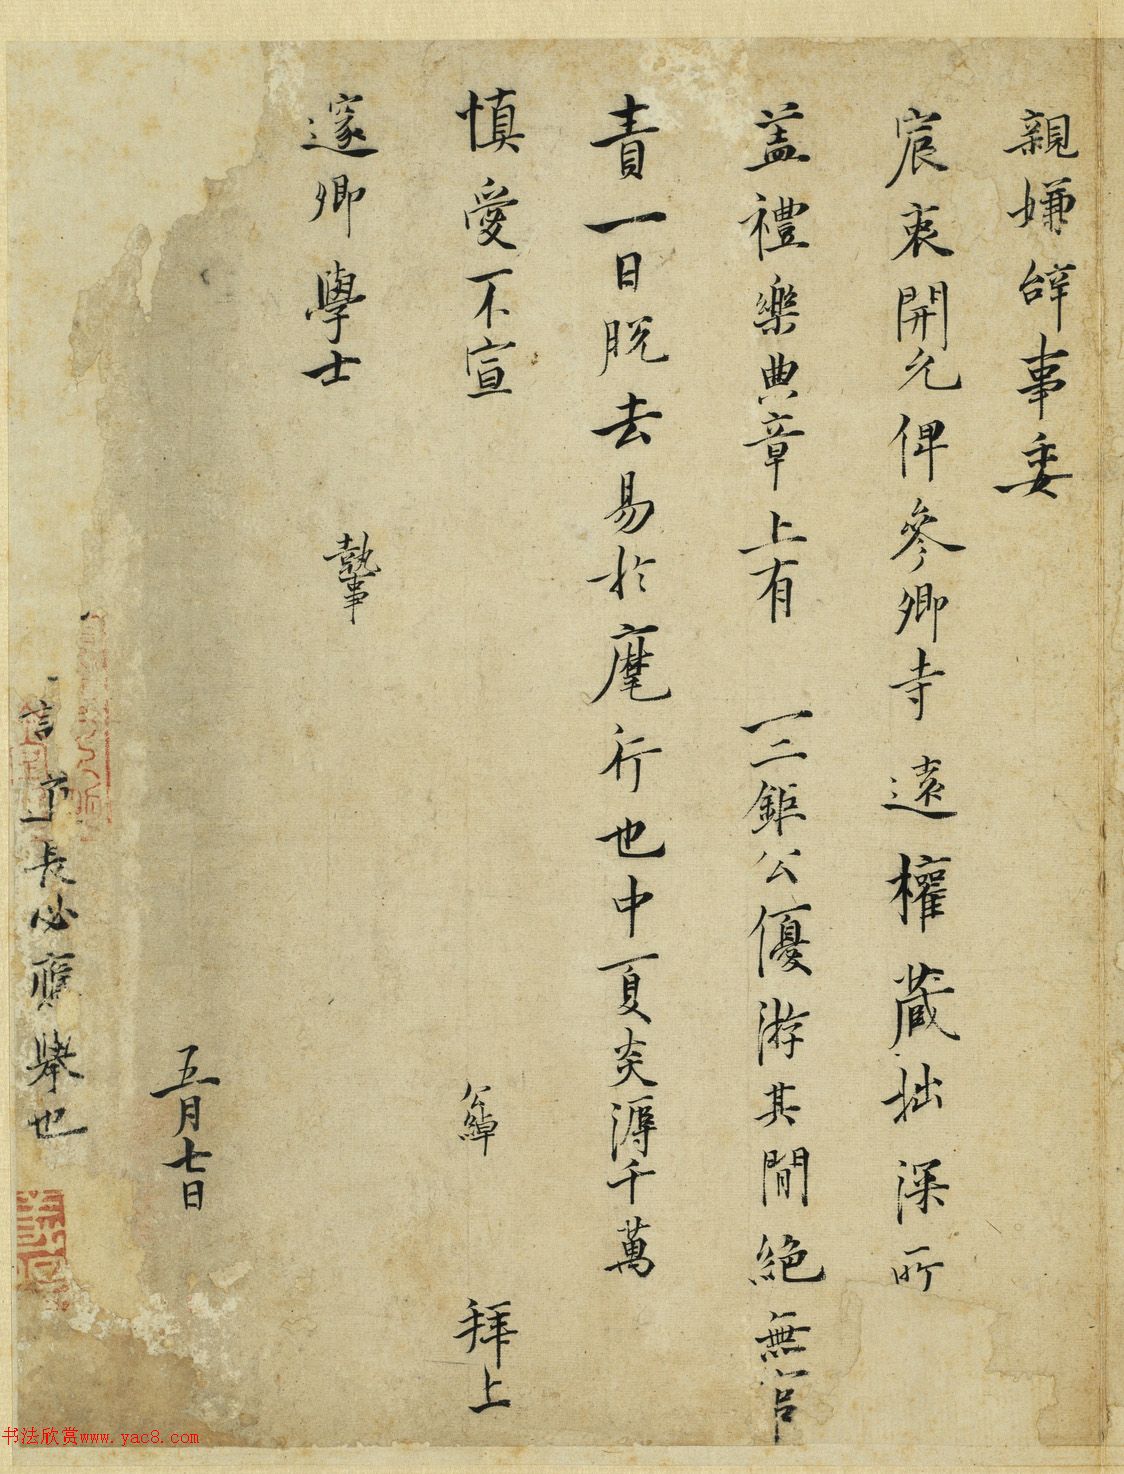 親嫌辞事委
宸衷開允俾參卿寺遠權藏拙深所
盖禮樂典章上有 一二鉅公優游其間絶無官
責一日脱去易於麾行也中夏炎溽千萬
慎愛不宣 公綽 拜上
邃卿學士 執事
五月七日
言 長必應舉也
书法欣赏www.yac8.com